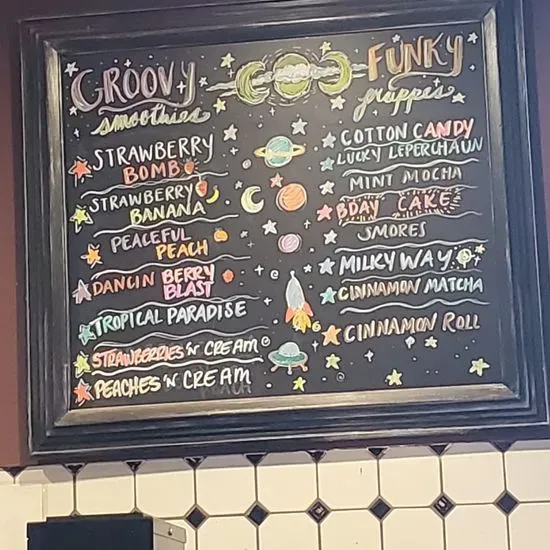 GROOVY
smoothies
STRAWBERRY
BOMB
STRAWBERRY
BANANA
PEACEFUL
PEACH
DANCIN BERRY
BLAST
TROPICAL PARADISE
STRAWBERRIES 'N' CREAM
PEACHES 'N' CREAM
FUNKY
frappes
COTTON CANDY
LUCKY LEPERCHAUN
MINT MOCHA
BDAY CAKE
SMORES
MILKY WAY
CINNAMON MATCHA
CINNAMON ROLL